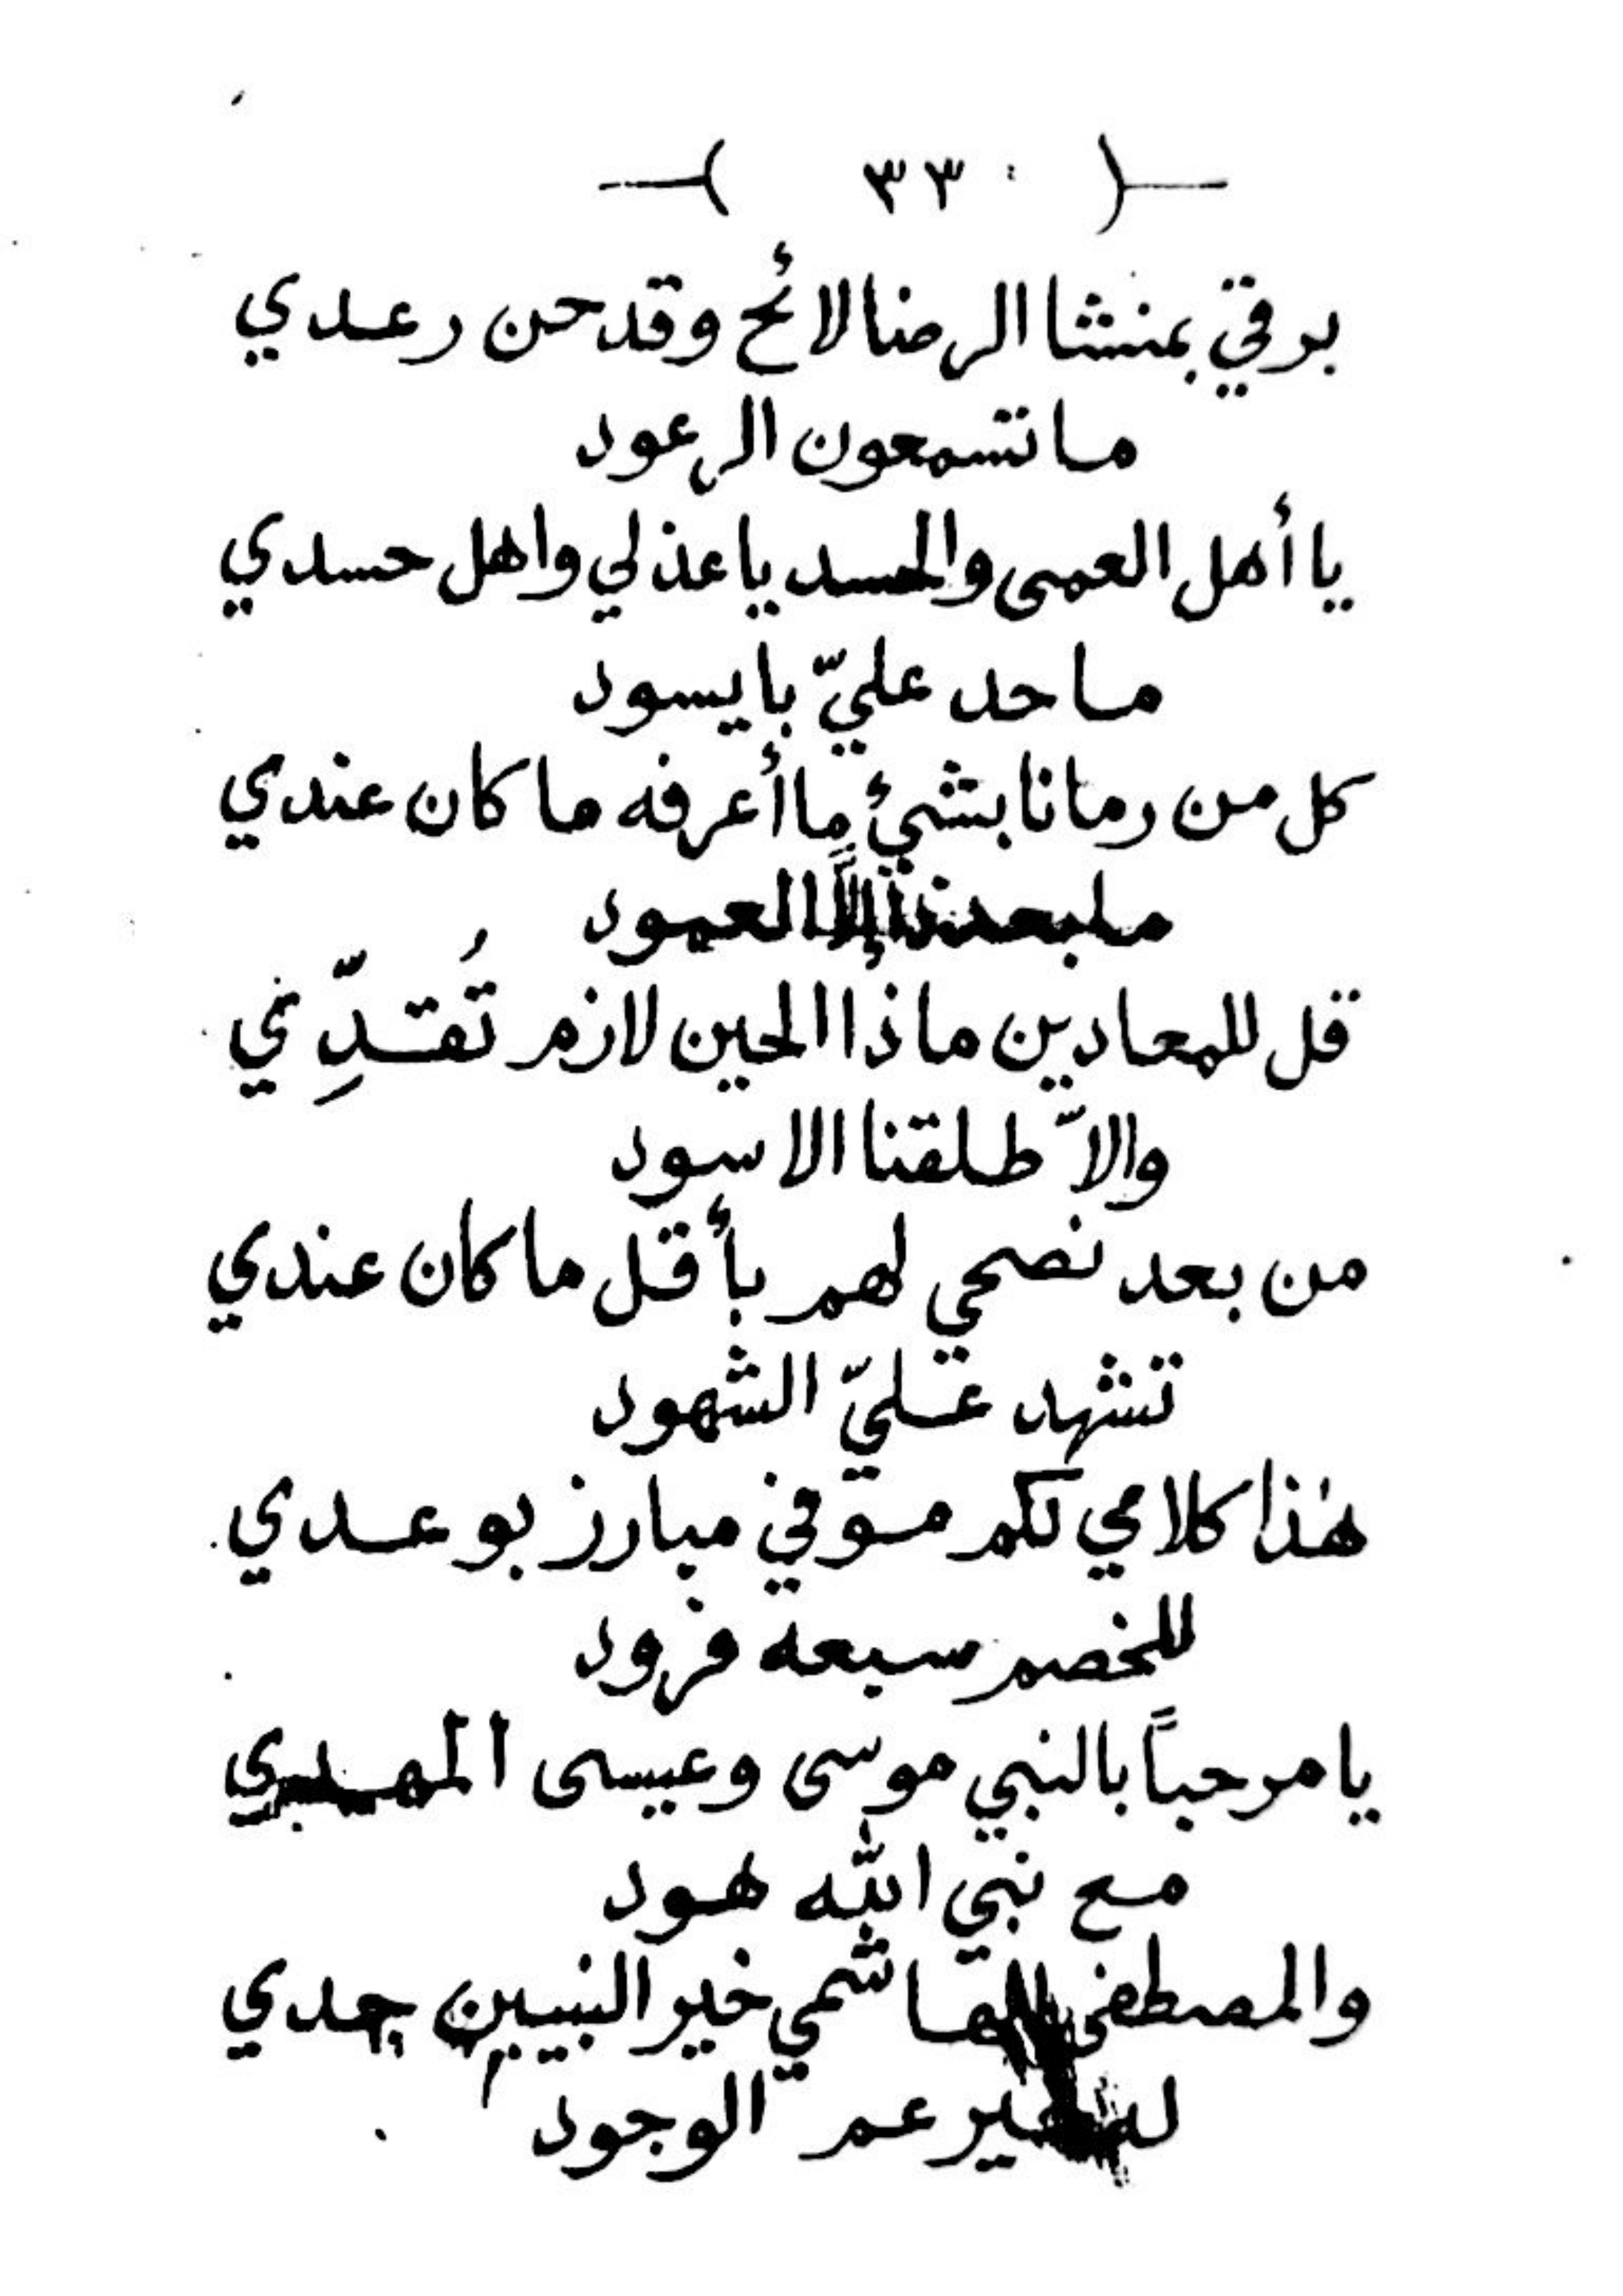 ٣٣٠
برقي بمنشا الرضا لائح وقد حن رعدي
ما تسمعون الرعود
يا أهل العمى والحسد يا عذلي واهل حسدي
ما حد عليّ با يسود
كل من رمانا بشئ ما أعرفه ما كان عندي
العمود
قل للمعادين ماذا الحين لازم تُقتدِّ ني
والاّ طلقنا الاسود
من بعد نصحي لهم بأقل ما كان عندي
تشهد عليّ الشهود
هٰذا كلامي لكم موفي مبارز بو عدي
للخصم سبعه فرود
يا مرحباً بالنبي موسى وعيسى المهدي
مع نبي الله هود
والمصطفى الهاشمي خير النبيين جدي
عم الوجود